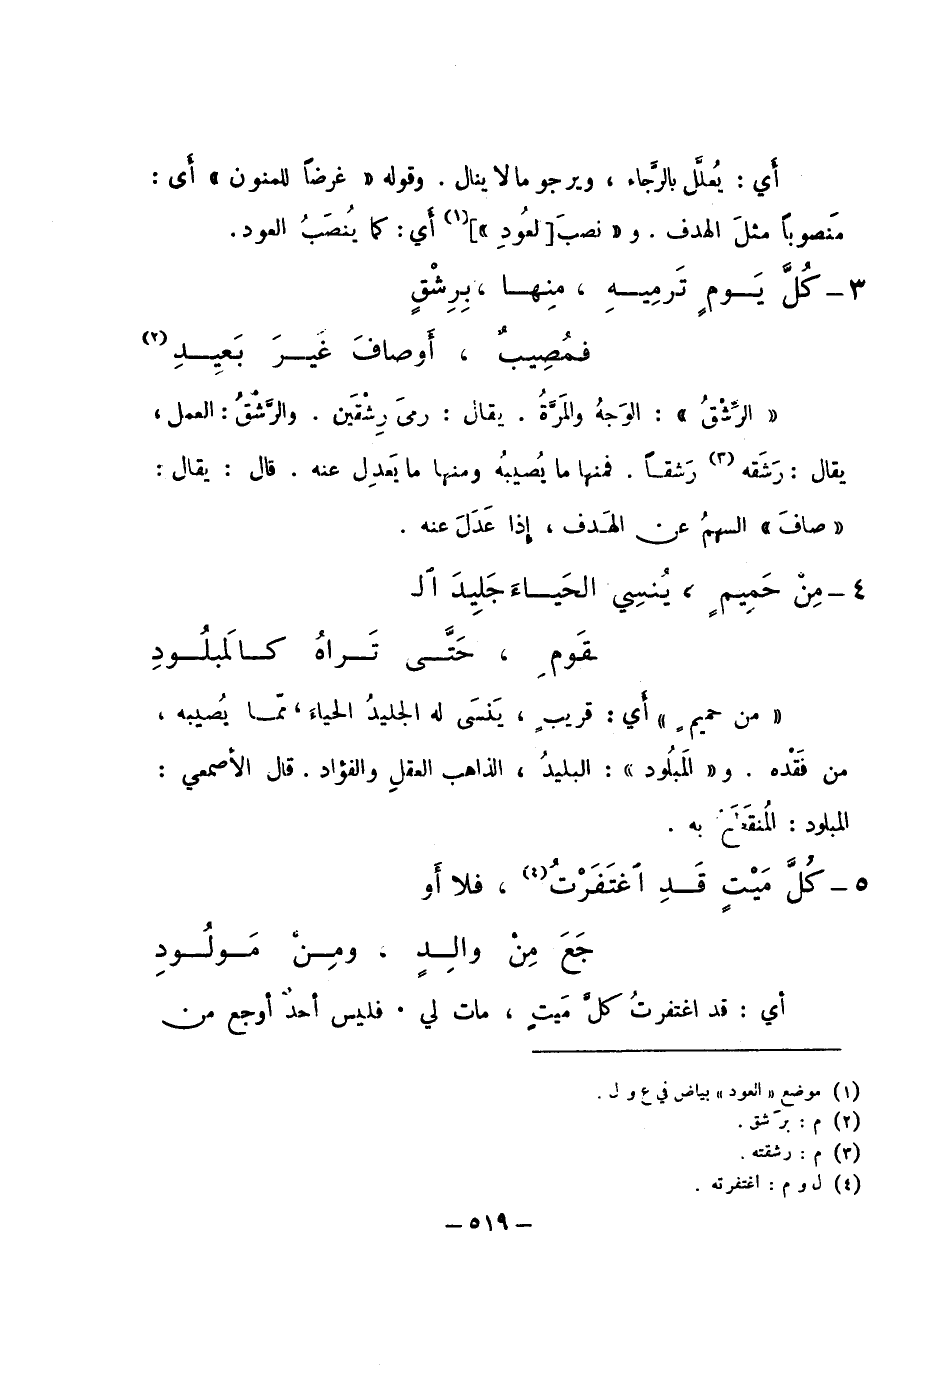 أَي : يُعلَّل بالرَّجاء ، ويرجو مالا ينال . وقوله « غرضاً للمنون » أَى :
مَنصوباً مثلَ الهدف . و « نصبَ[لعُودِ »](١) أَي : كما يُنصَبُ العود .
٣ – كُلَّ يَـــومٍ تَرمِيـــهِ ، مِنهـــا ، بِرِشْقٍ
فمُصِيبٌ ، أَوصافَ غَيـــرَ بَعِيـــدِ(٢)
« الرِّشْقُ » : الوَجهُ والمَرَّةُ . يقال : رمىَ رِشْقَين . والرَّشْقُ : العمل ،
يقال : رَشَقه (٣) رَشقـاً . فمنها ما يُصيبهُ ومنها ما يَعدِل عنه . قال : يقال :
« صافَ » السهمُ عن الهَدف ، إِذا عَدَلَ عنه .
٤ – مِنْ حَمِيمٍ ، يُنسِي الحَيـــاءَ جَلِيدَ ٱلـ
ـقَومِ ، حَتَّـــى تَـــراهُ كـــالمَبلُـــودِ
« من حميمٍ » أَي : قريبٍ ، يَنسَى له الجليدُ الحياءَ ، ممّـا يُصيبه ،
من فَقْده . و « المَبلُود » : البليدُ ، الذاهب العقلِ والفؤاد . قال الأصمعي :
المبلود : المُنقطَع به .
٥ – كُلَّ مَيْتٍ قَـــدِ ٱغتَفَرْتُ(٤) ، فلا أَو
جَعَ مِنْ والِـــدٍ ، ومِـــنْ مَـــولُـــودِ
أي : قد اغتفرتُ كلَّ مَيتٍ ، مات لي . فليس أحدٌ أوجع من
(١) موضع « العود » بياض في ع و ل .
(٢) م : برَشق .
(٣) م : رشقته .
(٤) ل و م : اغتفرته .
– ٥١٩ –